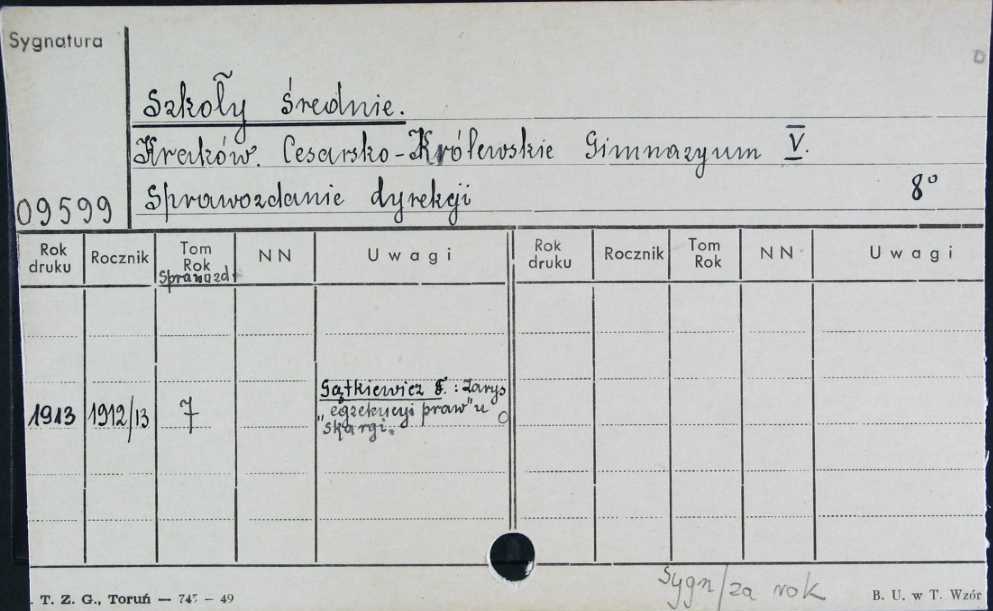 Sygnatura
Szkoły średnie.
Kraków. Cesarsko-Królewskie Gimnazyum V.
Sprawozdanie dyrekcji 8°
09599
Rok druku Rocznik Tom Rok Sprawozd. NN Uwagi Rok druku Rocznik Tom Rok NN Uwagi
1913 1912/13 7 Gątkiewicz F. : Zarys
„egzekucyi praw" u
Skargi.
Sygn/za rok
. T. Z. G., Toruń — 747 – 49 B. U. w T. Wzór